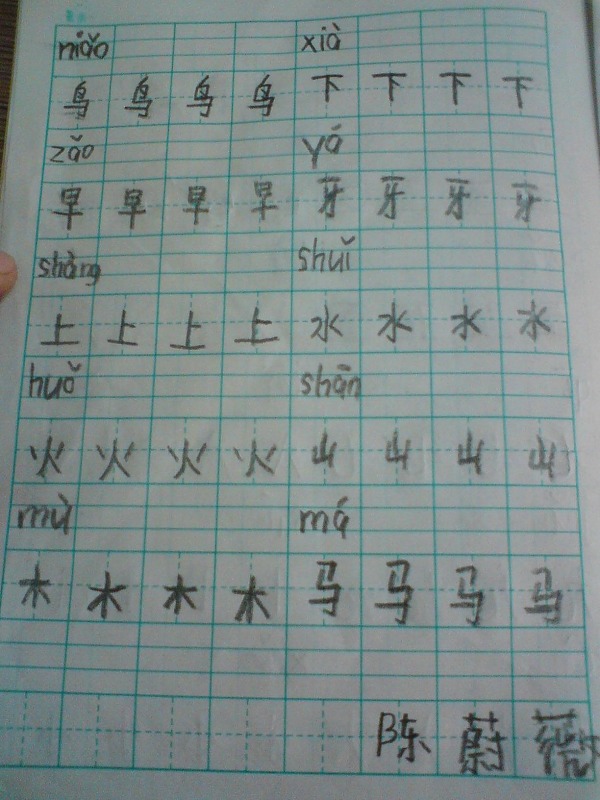 niǎo xià
鸟 鸟 鸟 鸟 下 下 下 下
zǎo yá
早 早 早 早 牙 牙 牙 牙
shàng shuǐ
上 上 上 上 水 水 水 水
huǒ shān
火 火 火 火 山 山 山 山
mù má
木 木 木 木 马 马 马 马
陈 蔚 薇